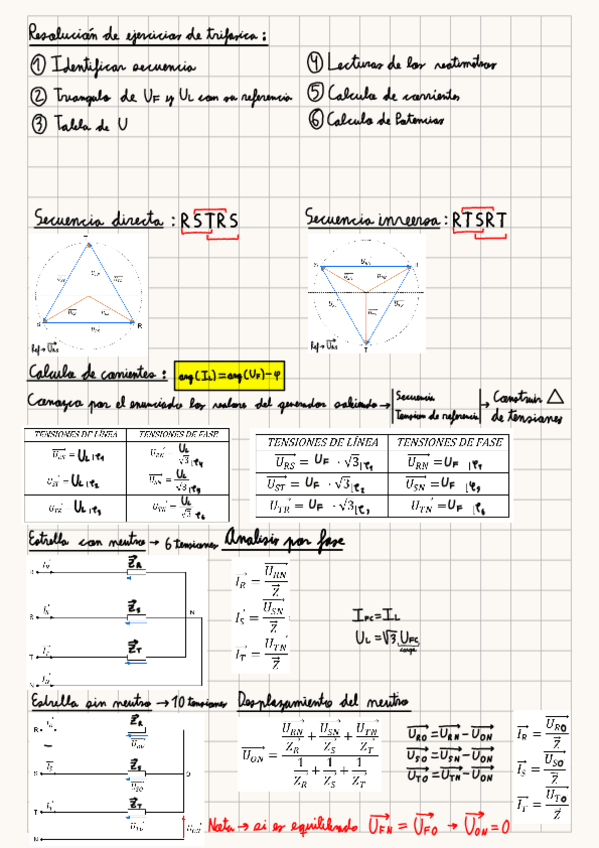 Resolución de ejercicios de trifásica:
① Identificar secuencia
② Triangulo de UF y UL con su referencia
③ Tabla de U
④ Lecturas de los watimetros
⑤ Calculo de corrientes
⑥ Calculo de Potencias
Secuencia directa: RSTRS
Secuencia inversa: RTSRT
S R
T
Ref→URS
Calculo de corrientes: arg(IL)=arg(UF)-φ
Conozco por el enunciado los valores del generador sabiendo → Secuencia
Tension de referencia → Construir △ de tensiones
TENSIONES DE LÍNEA TENSIONES DE FASE
TENSIONES DE LÍNEA TENSIONES DE FASE
URS = UF · √3 |φ1 URN = UF |φ4
UST = UF · √3 |φ2 USN = UF |φ5
UTR = UF · √3 |φ3 UTN = UF |φ6
Estrella con neutro → 6 tensiones Analisis por fase
ZR
ZS
ZT
N
IR = URN / Z
IS = USN / Z
IT = UTN / Z
IFC=IL
UL=√3 UFC
carga
Estrella sin neutro → 10 tensiones Desplazamiento del neutro
ZR
ZS
ZT
UON = (URN/ZR + USN/ZS + UTN/ZT) / (1/ZR + 1/ZS + 1/ZT)
URO = URN - UON
USO = USN - UON
UTO = UTN - UON
IR = URO / Z
IS = USO / Z
IT = UTO / Z
Nota → si es equilibrado UFN = UFO → UON = 0